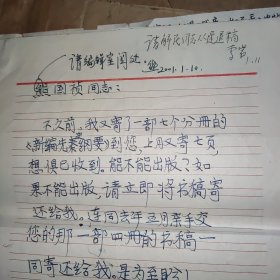 请解放同志从处退稿
李岩
1.11
请编辑室阅处。
2001.1.10.
熊国祯同志：
不久前，我又寄了一部七个分册的
《新编先秦纲要》到您，上月又寄七页
想俱已收到。能不能出版？如
果不能出版，请立即将书稿寄
还给我。连同去年三月亲手交
您的那一部四册的书稿一
同寄还给我。是为至盼！